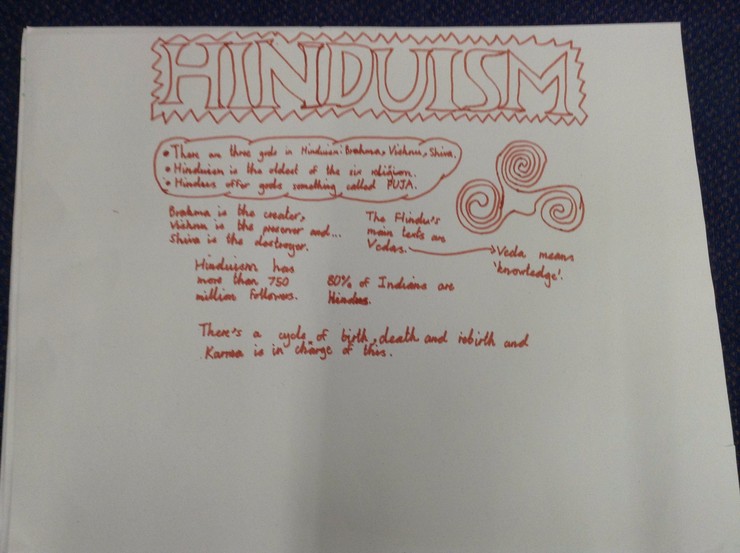 HINDUISM
• There are three gods in Hinduism: Brahma, Vishnu, Shiva.
• Hinduism is the oldest of the six religion.
• Hindus offer gods something called PUJA.
Brahma is the creater,
Vishnu is the preserver and...
Shiva is the destroyer.
The Hindu's
main texts are
Vedas.
Veda means
'knowledge'.
Hinduism has
more than 750
million followers.
80% of Indians are
Hindus.
There's a cycle of birth, death and rebirth and
Karma is in charge of this.